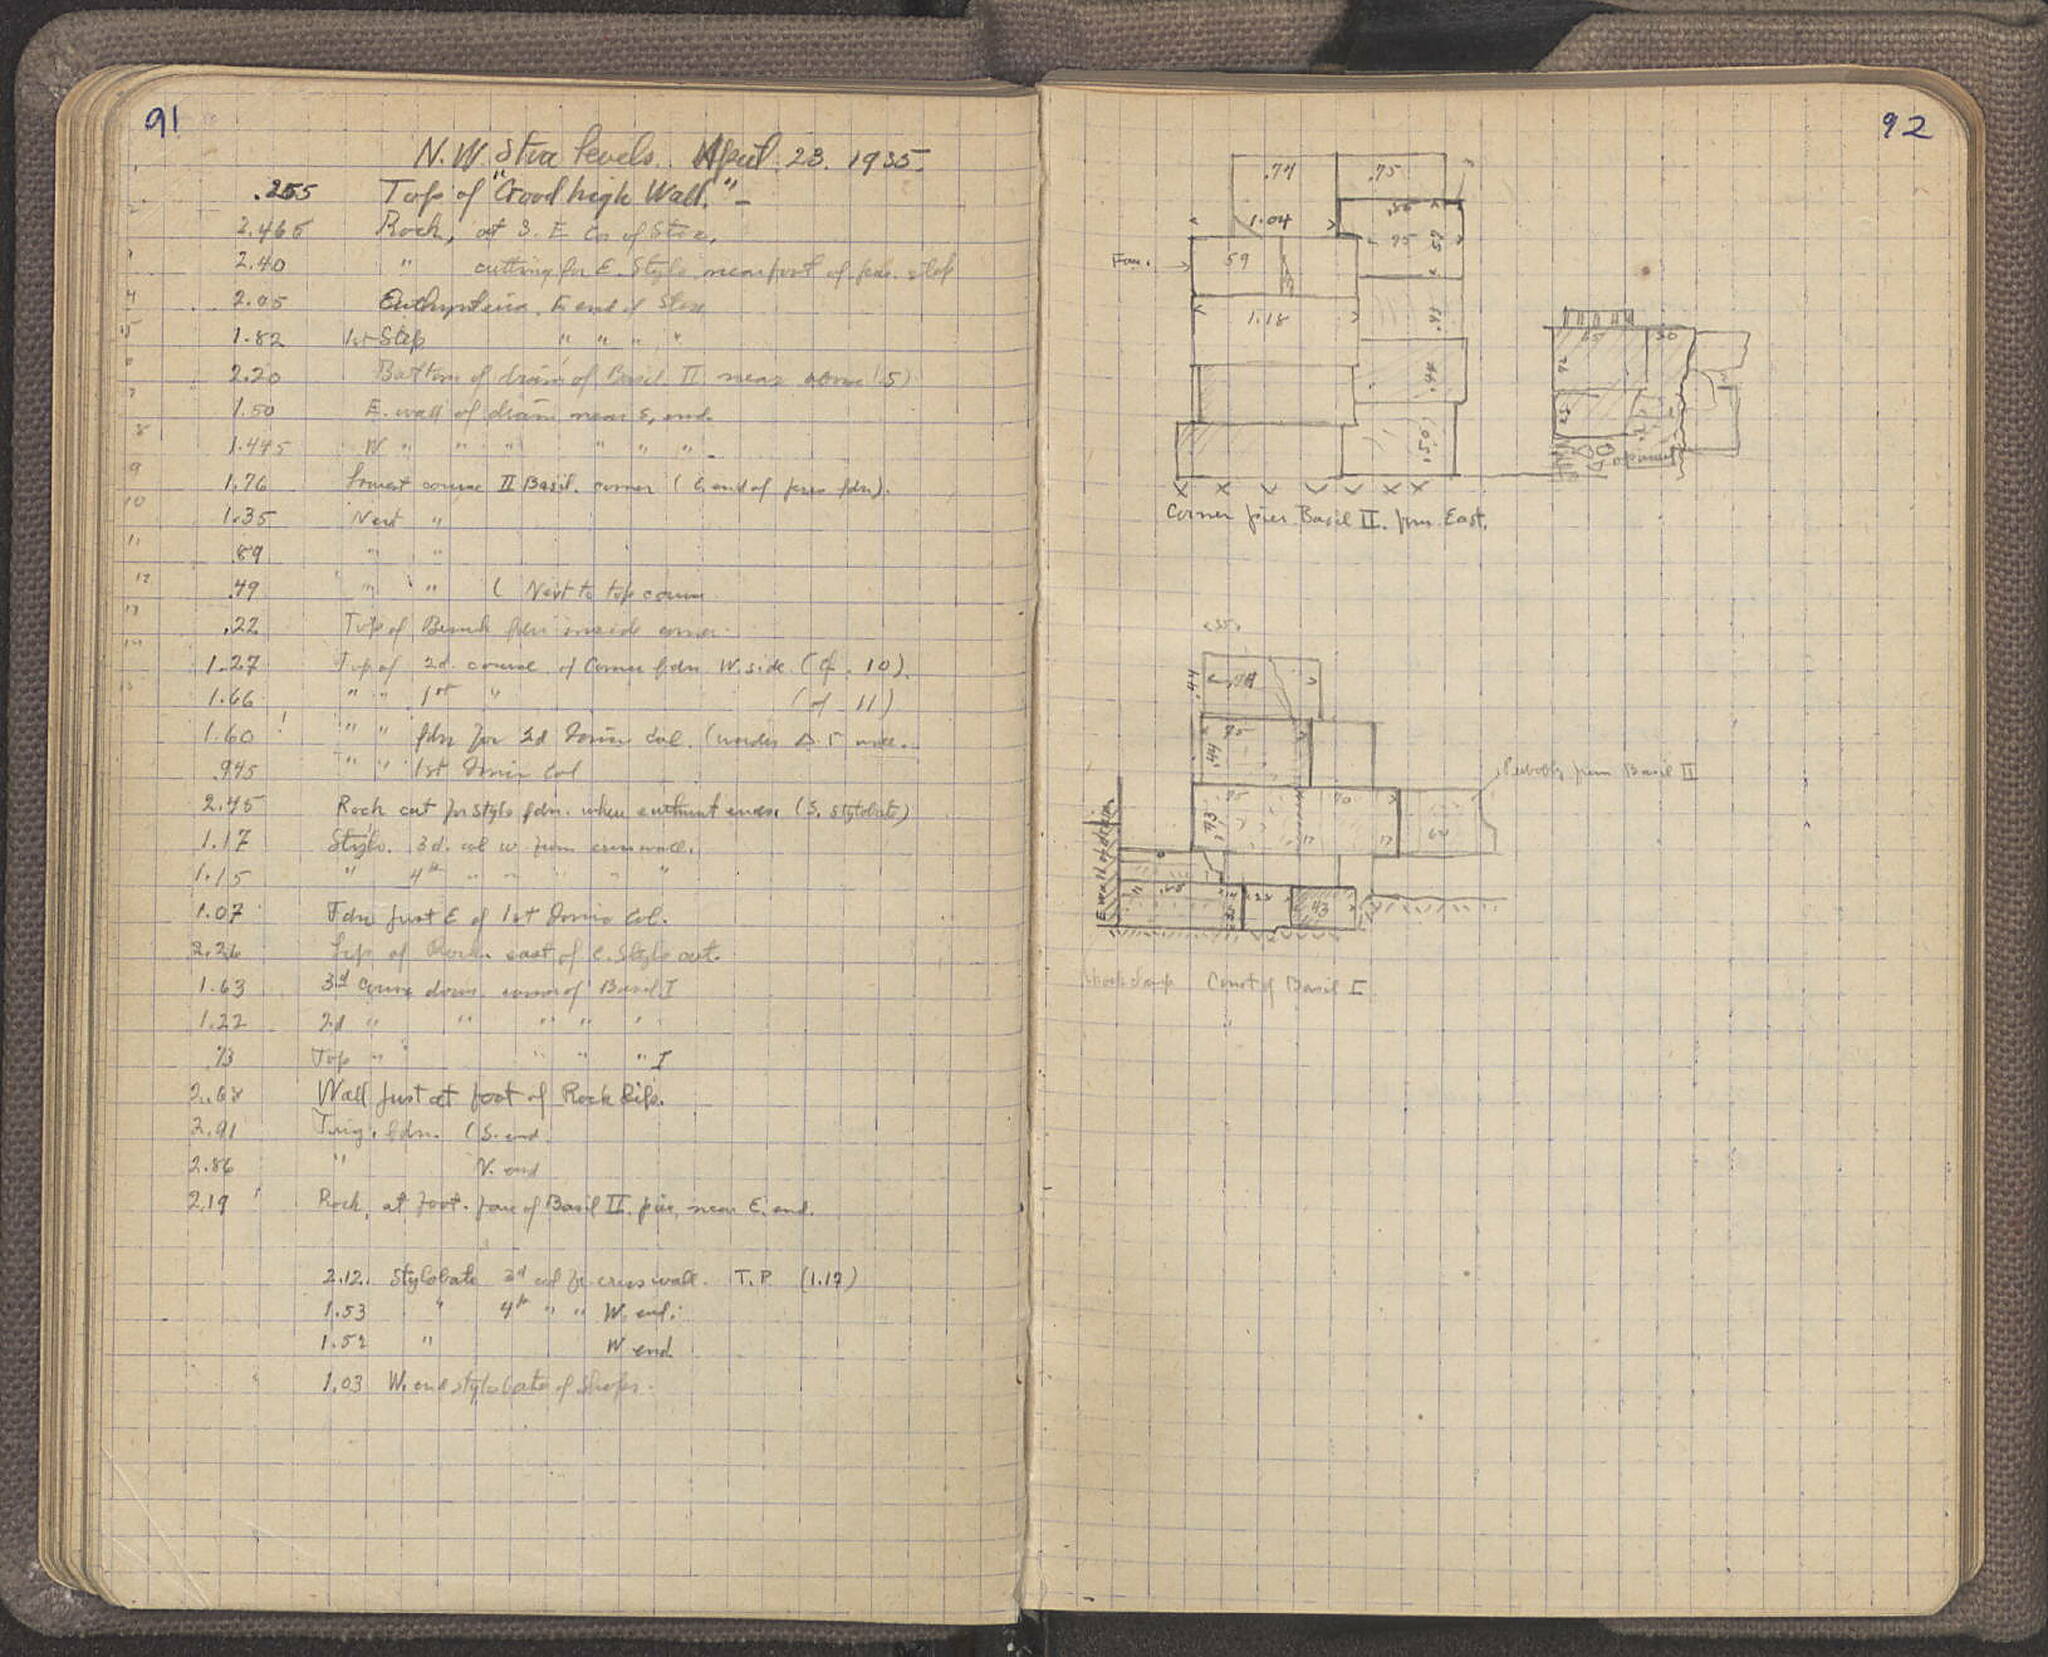 91
N.W. Stoa levels. April. 23. 1935.
.255 Top of "Good high Wall." -
2 2.465 Rock, at S. E Cor of Stoa.
3 2.40 " cutting for E. Stylo near foot of
4 2.05 Euthynteria. E end of Stoa
5 1.82 1st Step " " " "
6 2.20 Bottom of drain of Basil II near above (5)
7 1.50 E. wall of drain near S. end.
8 1.445 W " " " " " " .
9 1.76 Lowest course II Basil. corner ( E. end of fdn).
10 1.35 Next "
11 .89 " "
12 .49 " " ( Next to top course
13 .22 Top of Bench fdn inside corner.
14 1.27 Top of 2d. course of Corner fdn W. side. (Cf. 10).
15 1.66 " " 1st " (cf 11)
1.60 ! " " fdn for 2d Ionic Col. (under
.945 " " 1st Ionic Col
2.45 Rock cut for stylo fdn. where euthynt ends. (S. stylobate)
1.17 Stylo. 3d. col w. from cross wall.
1.15 " 4th " " " " "
1.07 Fdn just E of 1st Ionic Col.
2.26 Lip of Rock east of E. Stylo cut.
1.63 3d Course down corner of Basil I
1.22 2d " " " " "
.73 Top " " " " " I
2.68 Wall just at foot of Rock Lip.
2.91 Trig. fdn. ( S. end.
2.86 " N. end
2.19 ! Rock, at foot. face of Basil II. pier, near E. end.
2.12. Stylobate 3d col fr. cross wall. T.P. (1.17)
1.53 " 4th " " W. end.
1.52 " W end
1.03 W. end stylobate of Shops.
92
.74 .75
1.04
.75 .52
Face. .59
1.18 .43
.44
.50
.65 .30
Corner pier Basil II. from East.
.35
.44
.75
.44
.75 .70
.43
Reblock from Basil II
E wall of drain
.22 .43
Court of Basil I